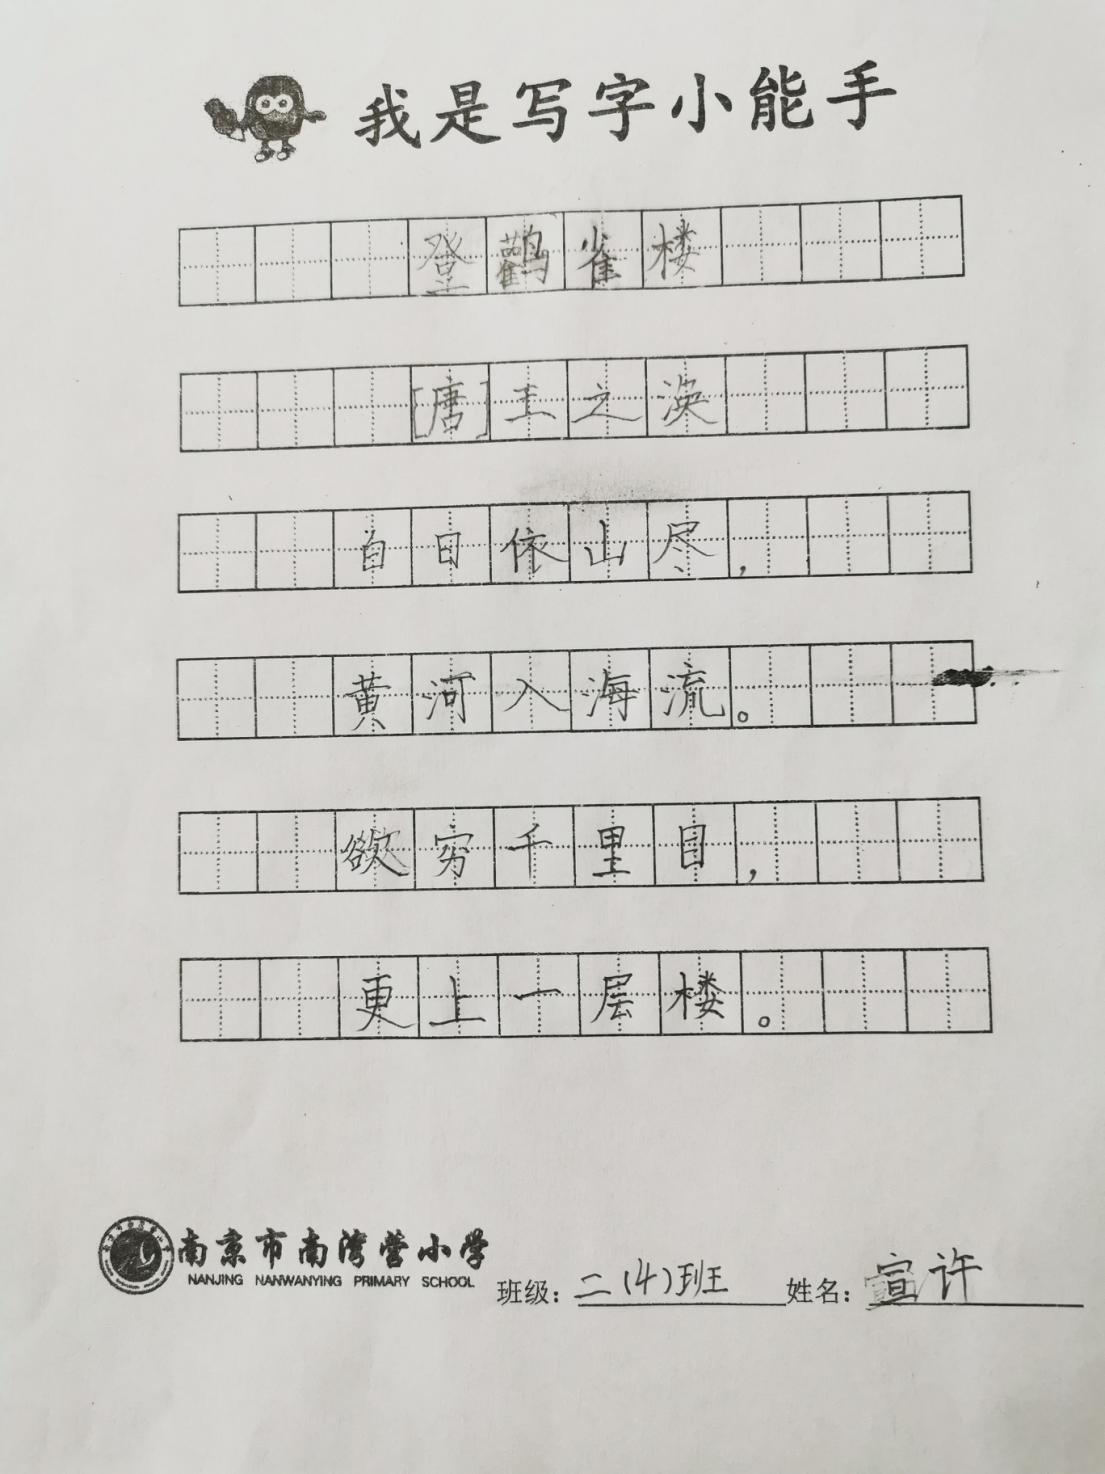 我是写字小能手
登鹳雀楼
[唐]王之涣
白日依山尽，
黄河入海流。
欲穷千里目，
更上一层楼。
南京市南湾营小学
NANJING NANWANYING PRIMARY SCHOOL
班级：二（4）班 姓名：宣许